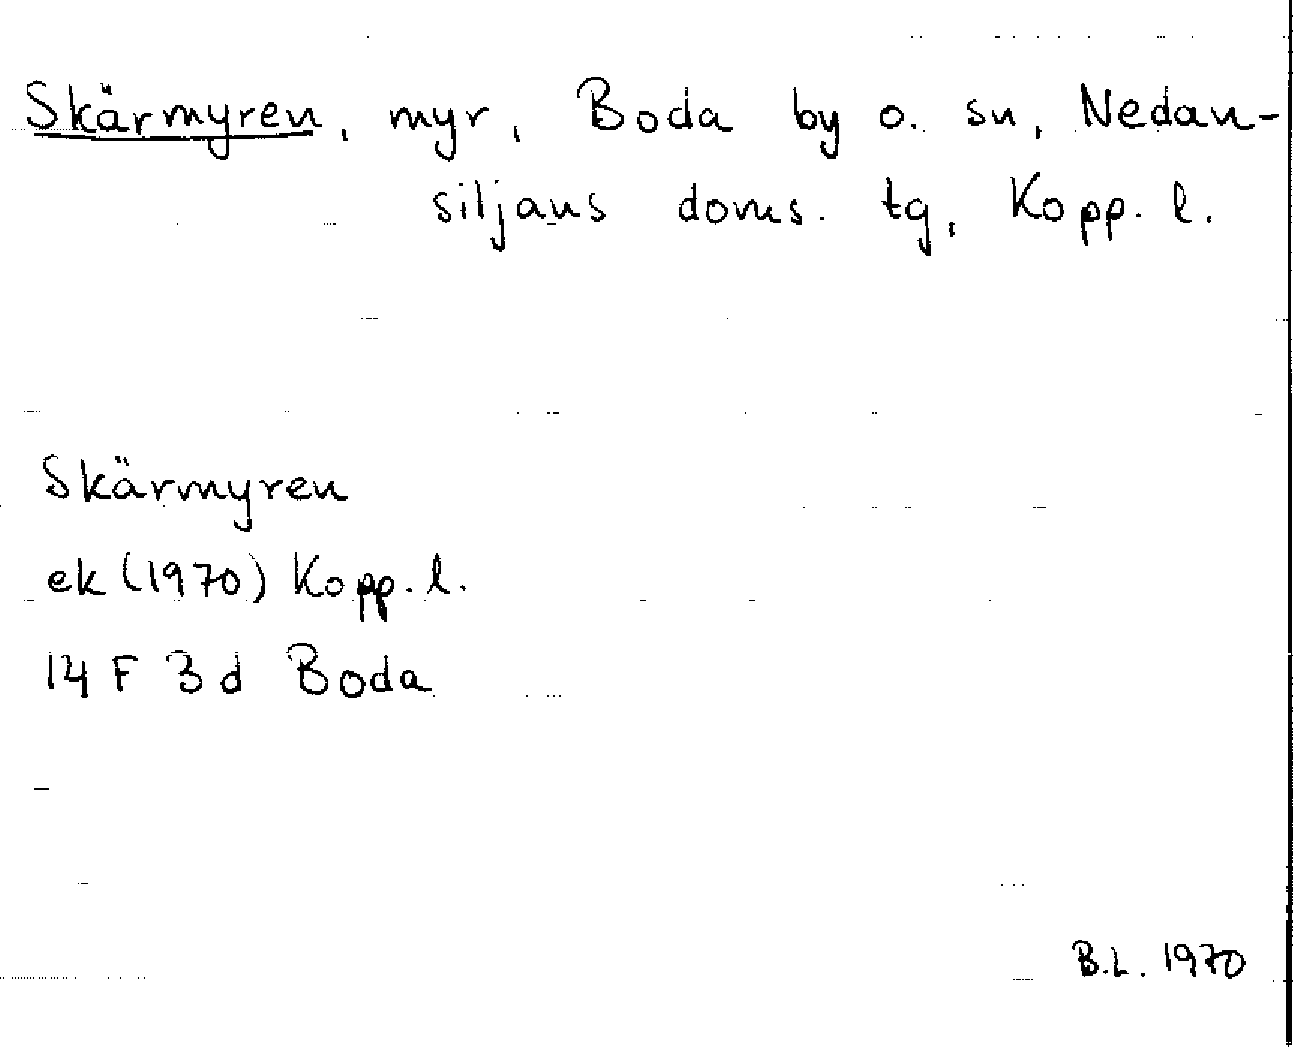 Skärmyren, myr, Boda by o. sn, Nedan-
siljans doms. tg, Kopp. l.
Skärmyren
ek (1970) Kopp. l.
14 F 3d Boda
B.L. 1970